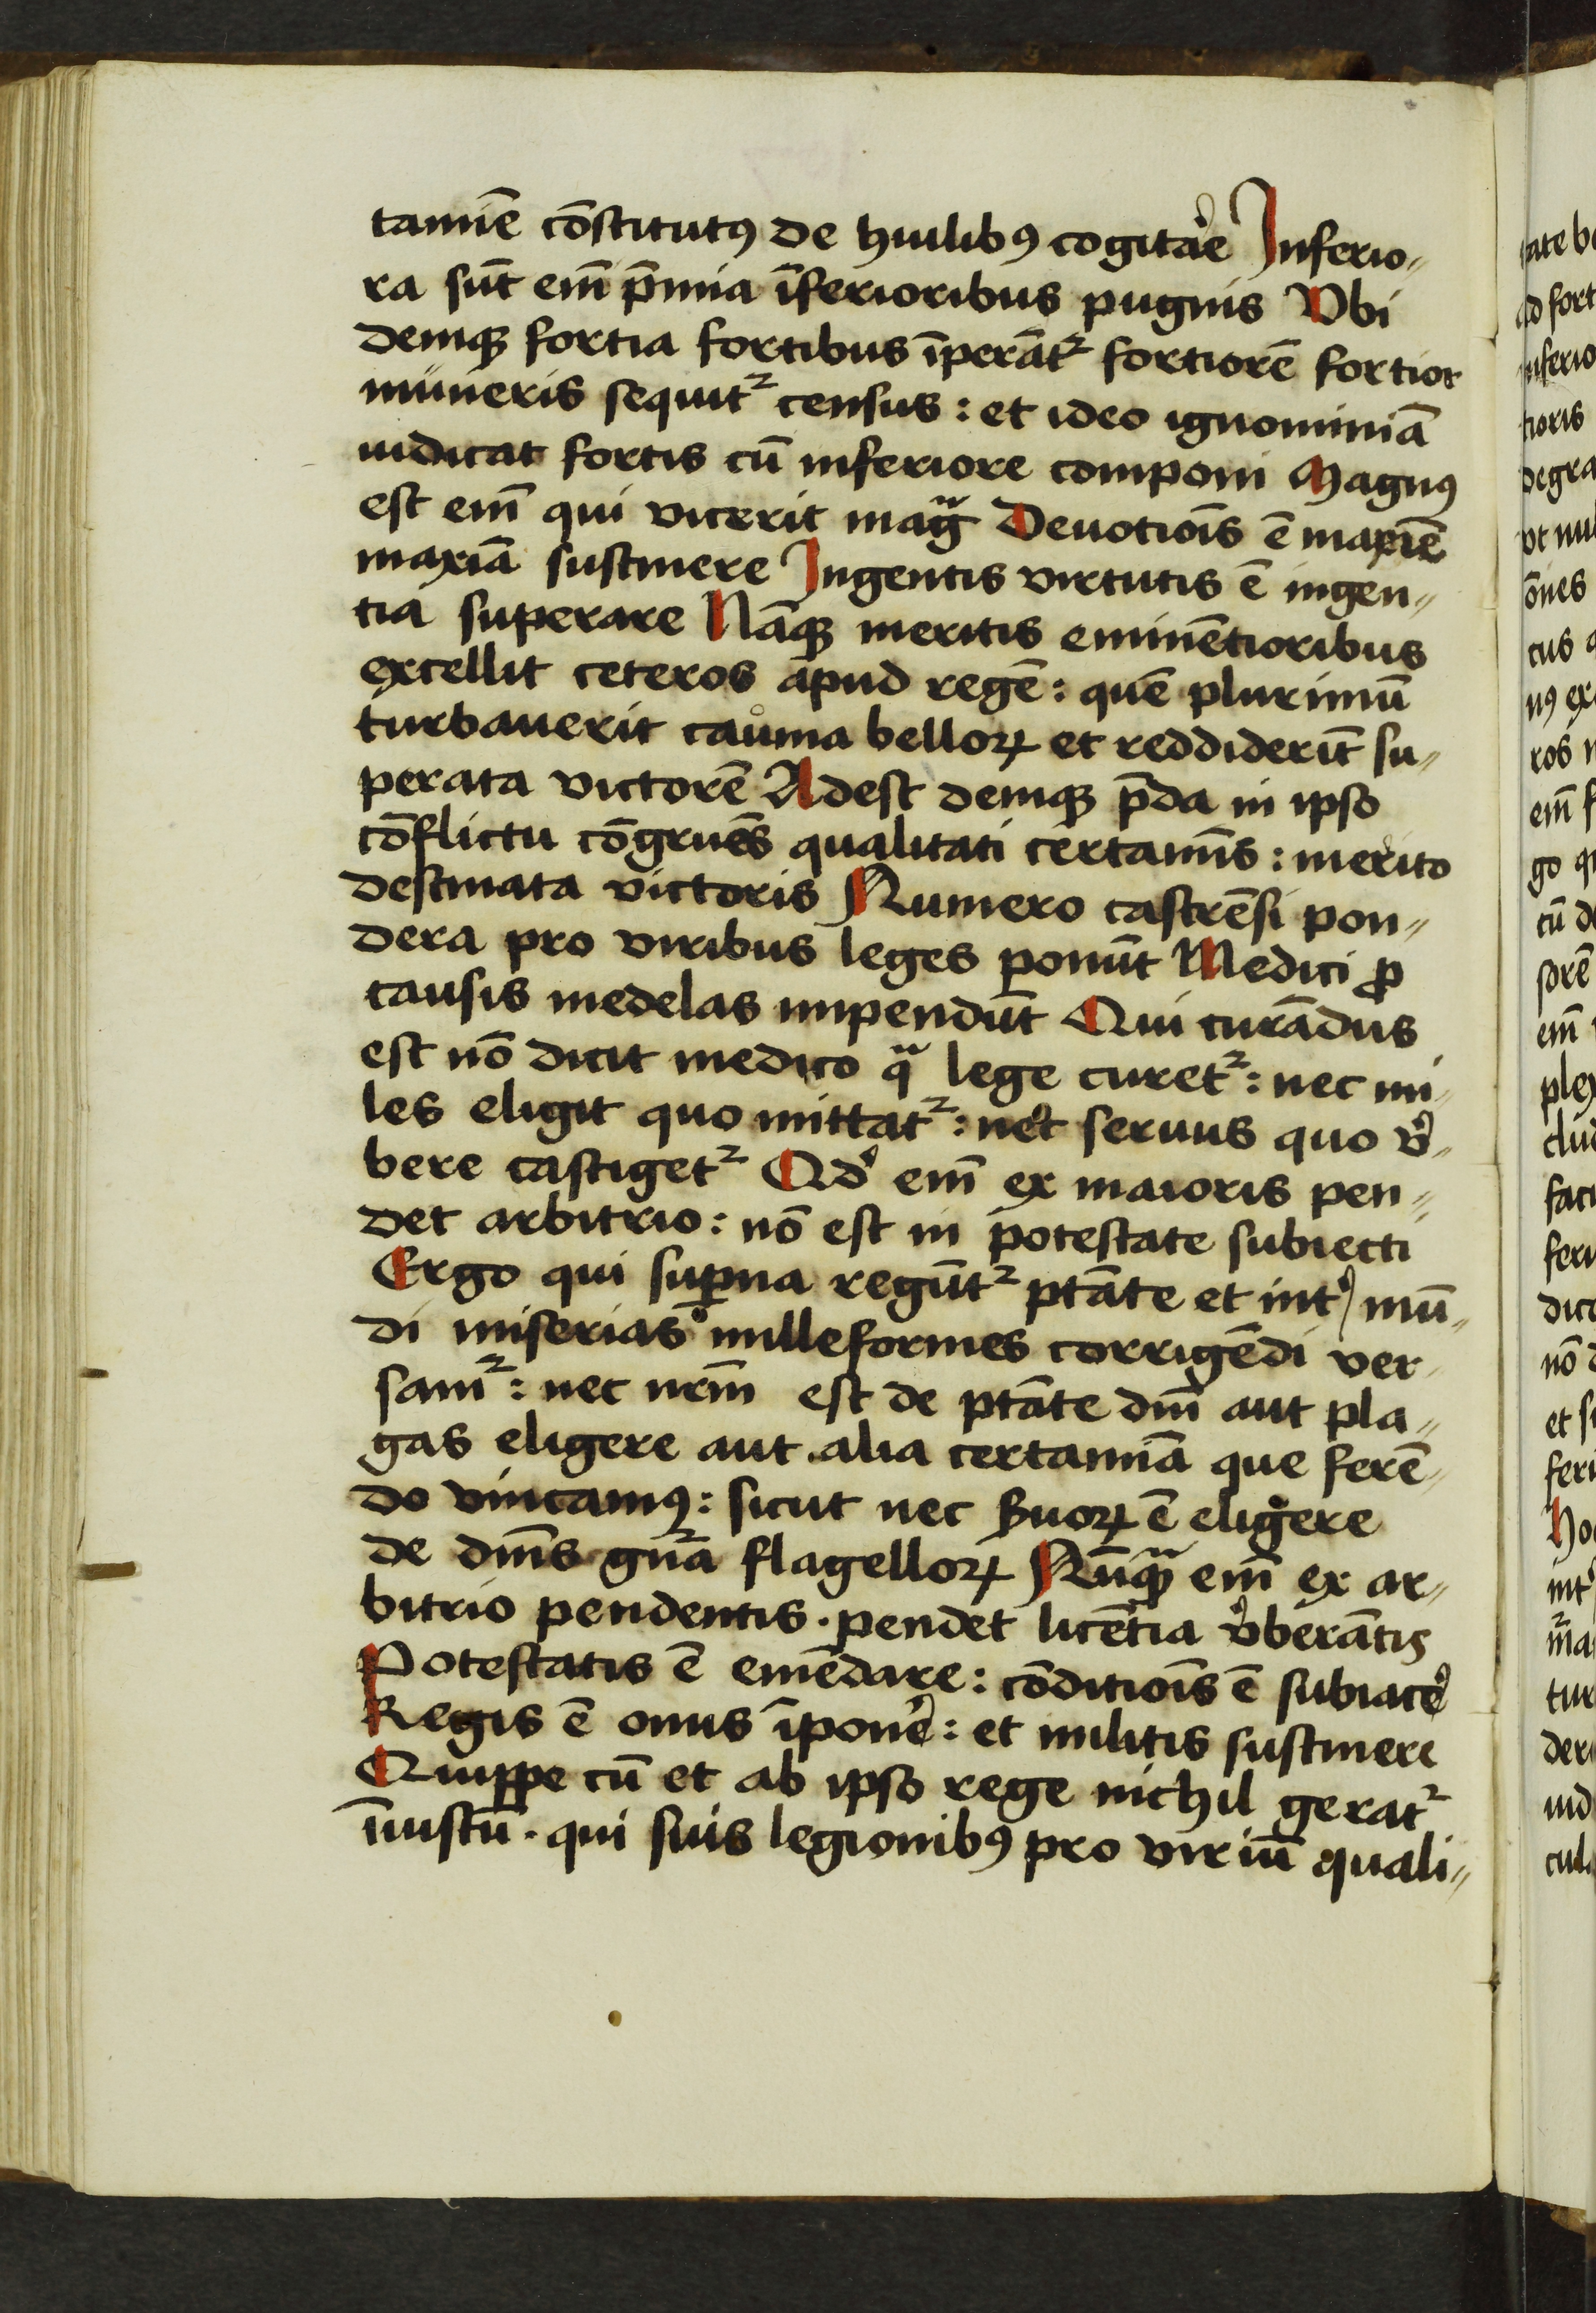 tamīe cōstitutꝯ de huilibꝯ cogitare Inferio⸗
ra sūt em̄ p̄mia īferioribus pugnis Vbi
deniqꝫ fortia fortibus īperāt᷑ fortiorē fortior
muneris sequit᷑ census : et ideo ignominiā
iudicat fortis cū inferiore componi Magnꝯ
est em̄ qui vicerit mag̃ Deuotiōis ē maxīe
maxīā sustinere Ingentis virtutis ē ingen⸗
tia superare Nāqꝫ meritis eminētioribus
excellit ceteros apud regē : quē plurimū
turbauerit cauma belloꝝ et reddiderīt su⸗
perata victorē Adest deniqꝫ p̄da in ipso
cōflictu cōgruēs qualitati certamīs : merito
destinata victoris Numero castrēsi pon⸗
dera pro viribus leges ponūt Medici ꝓ
causis medelas impendūt Qui curādus
est nō dicit medico qᷓ lege curet᷑ : nec mi⸗
les eligit quo mittat᷑ : nec seruus quo v̓⸗
bere castiget᷑ Qd̓ em̄ ex maioris pen⸗
det arbitrio : nō est in potestate subiecti
Ergo qui suꝑna regūt᷑ ptāte et int̓ mū⸗
di miserias milleformes corrigēdi ver⸗
sam᷑ : nec nr̄m est de ptāte dm̄ aut pla⸗
gas eligere aut alia certamīā que ferē⸗
do vincamꝯ : sicut nec ẞuoꝝ ē eligere
de dn̄is gn̄a flagelloꝝ Nūqᷓ em̄ ex ar⸗
bitrio pendentis · pendet licētia v̓berātis
Potestatis ē emēdare : cōditiōis ē subiacē
Regis ē onus īponē : et militis sustinere
Quippe cū et ab ipso rege nichil gerat᷑
īiustū · qui suis legionibꝯ pro viriū quali⸗